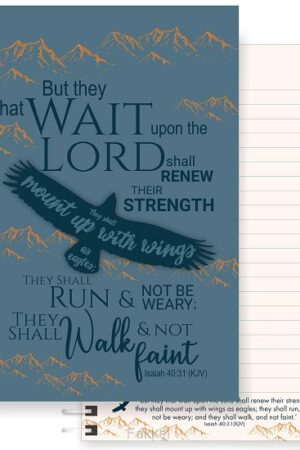 But they
hat WAIT upon the
LORD shall
RENEW
THEIR
STRENGTH
They shall
mount up with wings
as
eagles;
THEY SHALL
RUN & NOT BE
WEARY:
THEY
SHALL Walk & NOT
faint
Isaiah 40:31 (KJV)
that wait upon the Lord shall renew their stren
they shall mount up with wings as eagles; they shall run,
not be weary; and they shall walk, and not faint.'
40:31 (KJV)